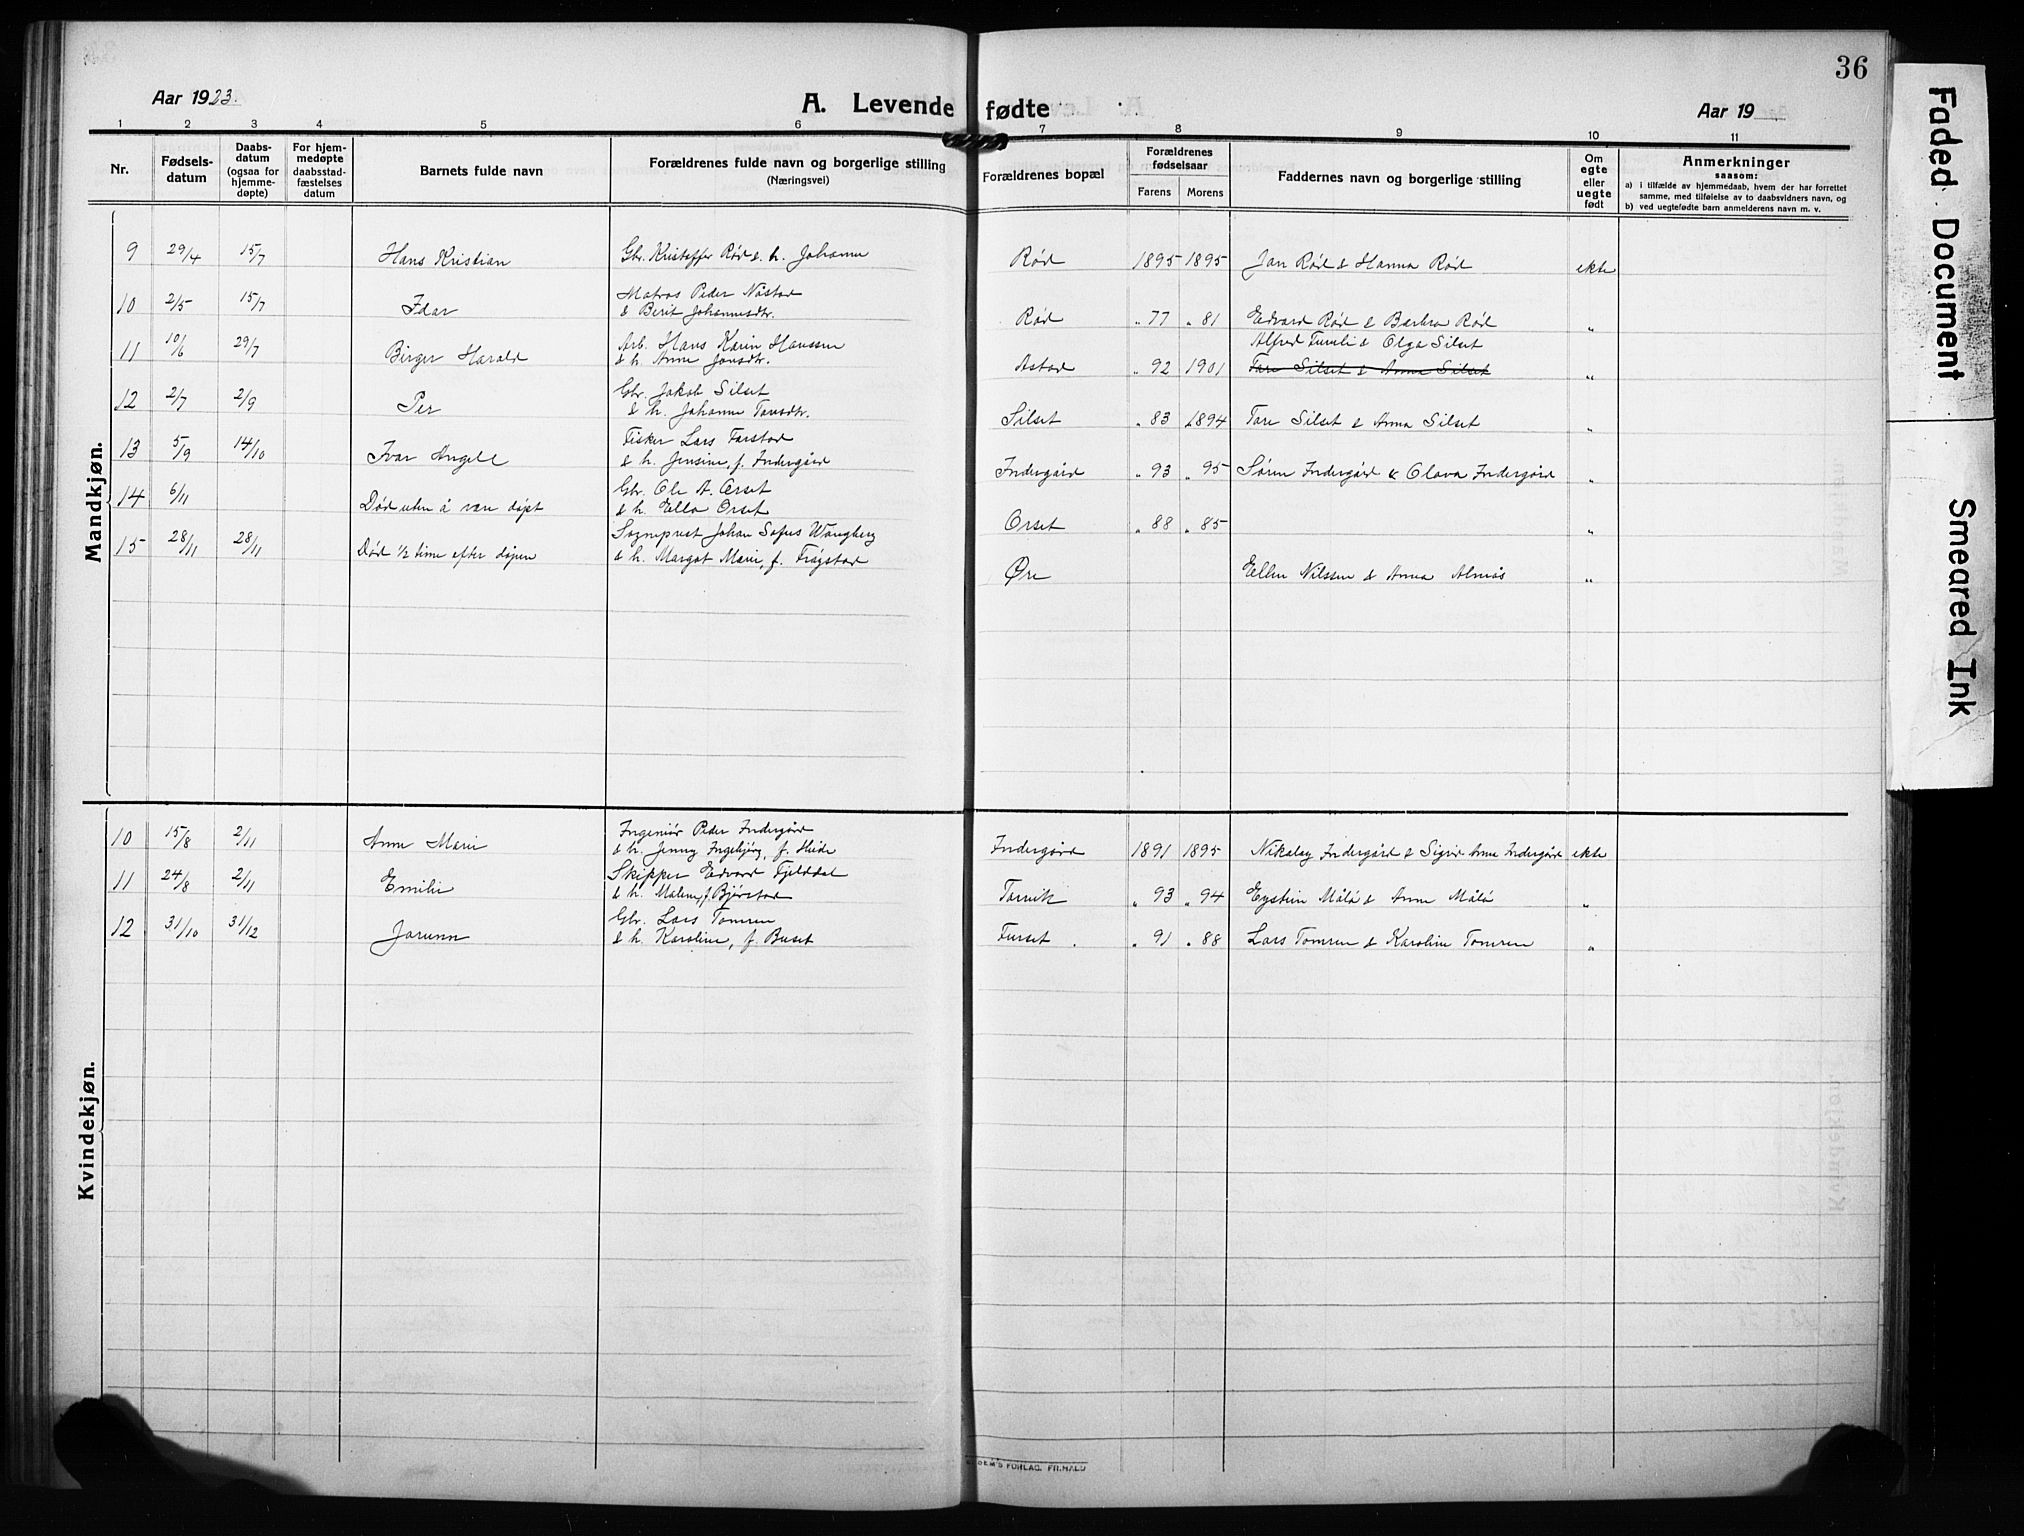 36
Aar 1923.
A. Levende fødte
Aar 19
1 2 3 4 5 6 7 8 9 10 11
Nr.
Fødsels-
datum
Daabs-
datum
(ogsaa for
hjemme-
døpte)
For hjem-
medøpte
daabsstad-
fæstelses
datum
Barnets fulde navn
Forældrenes fulde navn og borgerlige stilling
(Næringsvei)
Forældrenes bopæl
Forældrenes
fødselsaar
Farens Morens
Faddernes navn og borgerlige stilling
Om
egte
eller
uegte
født
Anmerkninger
saasom:
a) i tilfælde av hjemmedaab, hvem der har forrettet
samme, med tilføielse av to daabsvidners navn, og
b) ved uegtefødte barn anmelderens navn m. v.
Mandkjøn.
9 29/4 15/7 Hans Kristian Gbr. Kristoffer Rød & h. Johanne Rød 1895 1895 Jon Rød & Hanna Rød ekte
10 2/5 15/7 Idar Matros Peder Nåstad
& Berit Johannesdtr. Rød " 77 " 81 Edvard Rød & Barbra Rød "
11 10/6 29/7 Birger Harald Arb. Hans Karin Hanssen
& h. Anne Jonsdtr. Astad " 92 1901 Alfred & Olga Silset
Tore Silset & Anna Silset "
12 2/7 2/9 Per Gbr. Jakob Silset
& h. Johanne Toresdtr. Silset " 83 1894 Tore Silset & Anna Silset "
13 5/9 14/10 Ivar Angell Fisker Lars Farstad
& h. Jensine, f. Indergård Indergård " 93 " 95 Søren Indergård & Olava Indergård "
14 6/11 Død uten å være døpt Gbr. Ole A. Orset
& h. Ella Orset Orset " 88 " 85 "
15 28/11 28/11 Død 1/2 time efter dåpen Sogneprest Johan Sofus Wangberg
& h. Margot Marie, f. Frøystad Øre Ellen Nilssen & Anna Almås "
Kvindekjøn.
10 15/8 2/11 Anne Marie Ingeniør Peder Indergård
& h. Jenny Ingebjørg, f. Heide Indergård 1891 1895 Nikolay Indergård & Sigrid Anne Indergård ekte
11 24/8 2/11 Emilie Skipper Edvard Fjelddal
& h. Malene, f. Bjørstad Torvik " 93 " 94 Eystein Målö & Anne Målö "
12 31/10 31/12 Jorunn Gbr. Lars Tomren
& h. Karoline, f. Buset Furset " 91 " 88 Lars Tomren & Karoline Tomren "
FORLAG. FR. HALD
Faded Document
Smeared Ink